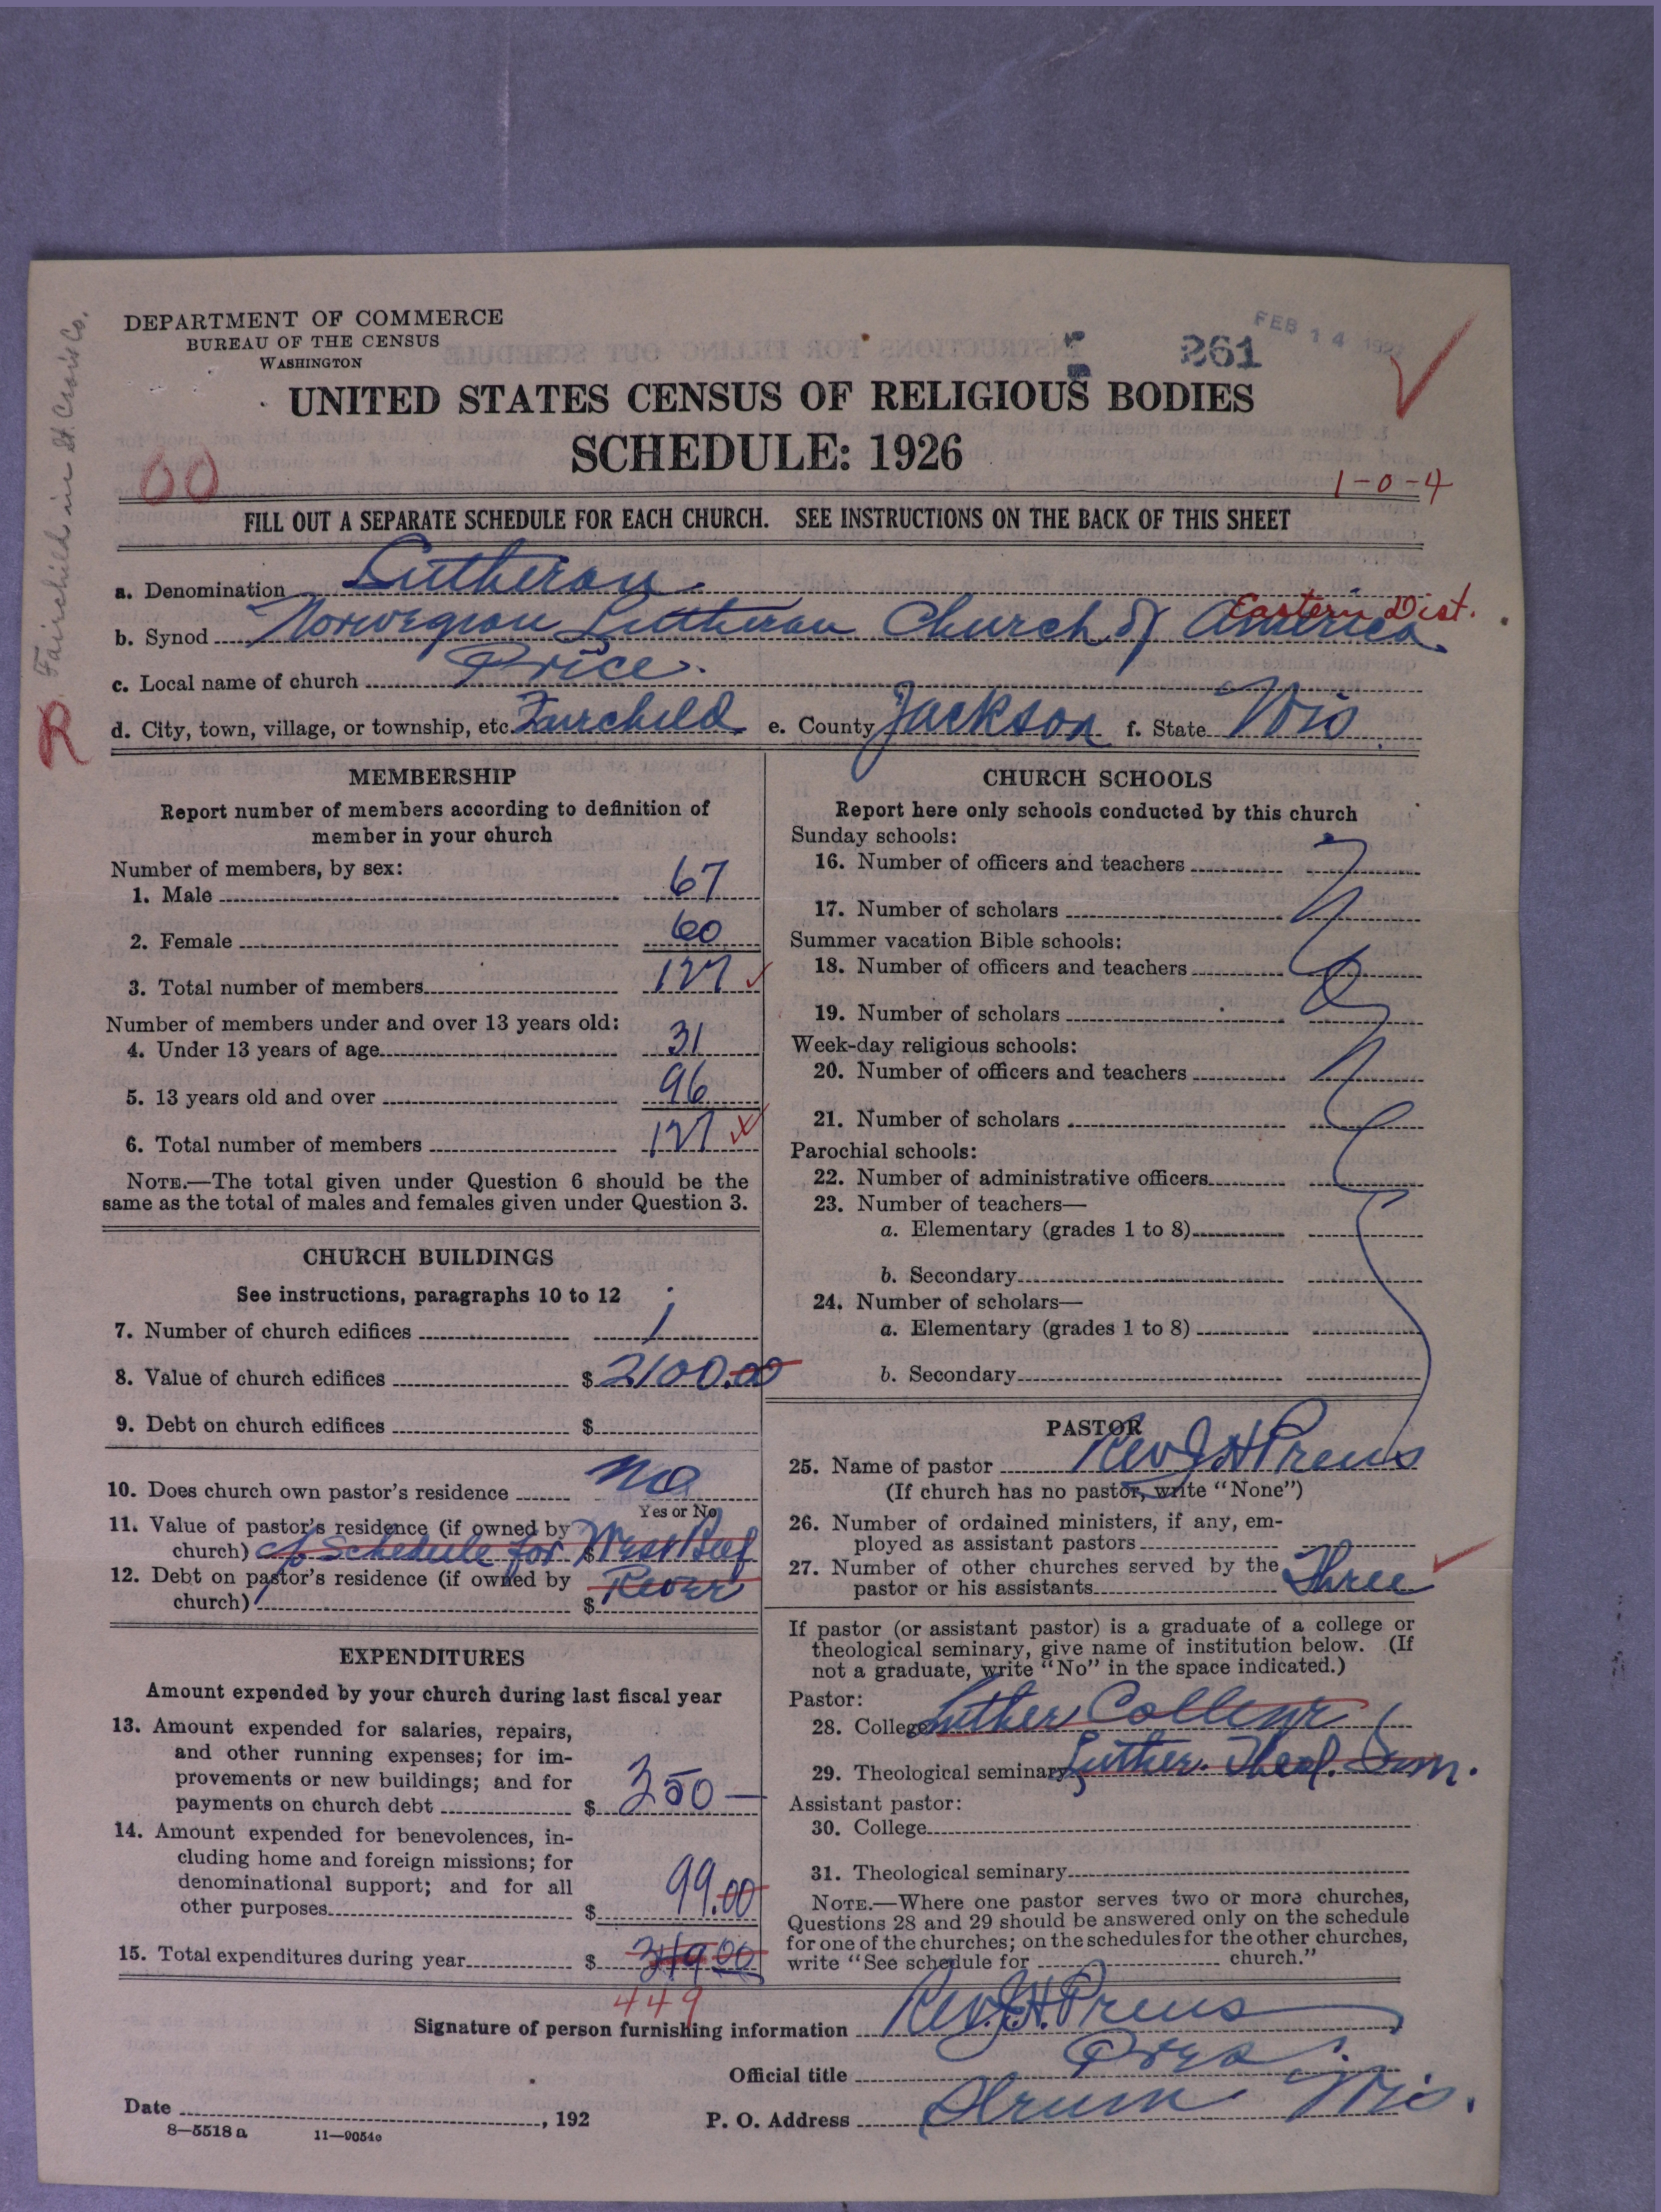 DEPARTMENT OF COMMERCE
BUREAU OF THE CENSUS
WASHINGTON
261
FEB 14 1927
UNITED STATES CENSUS OF RELIGIOUS BODIES
SCHEDULE: 1926
00
1-0-4
FILL OUT A SEPARATE SCHEDULE FOR EACH CHURCH. SEE INSTRUCTIONS ON THE BACK OF THIS SHEET
Fairchild in St. Croix Co.
R
a. Denomination Lutheran
b. Synod Norwegian Lutheran Church of America Eastern Dist.
c. Local name of church Price.
d. City, town, village, or township, etc. Fairchild e. County Jackson f. State Wis
MEMBERSHIP
Report number of members according to definition of
member in your church
Number of members, by sex:
1. Male 67
2. Female 60
3. Total number of members 127
Number of members under and over 13 years old:
4. Under 13 years of age 31
5. 13 years old and over 96
6. Total number of members 127
NOTE.—The total given under Question 6 should be the
same as the total of males and females given under Question 3.
CHURCH BUILDINGS
See instructions, paragraphs 10 to 12
7. Number of church edifices 1
8. Value of church edifices $ 2100.00
9. Debt on church edifices $
10. Does church own pastor's residence No
Yes or No
11. Value of pastor's residence (if owned by
church) cf Schedule for $ West Beef
12. Debt on pastor's residence (if owned by River
church) $
EXPENDITURES
Amount expended by your church during last fiscal year
13. Amount expended for salaries, repairs,
and other running expenses; for im-
provements or new buildings; and for
payments on church debt $ 350—
14. Amount expended for benevolences, in-
cluding home and foreign missions; for
denominational support; and for all
other purposes $ 99.00
15. Total expenditures during year $ 349 00
449
CHURCH SCHOOLS
Report here only schools conducted by this church
Sunday schools:
16. Number of officers and teachers
17. Number of scholars
Summer vacation Bible schools:
18. Number of officers and teachers
19. Number of scholars
Week-day religious schools:
20. Number of officers and teachers
21. Number of scholars
Parochial schools:
22. Number of administrative officers
23. Number of teachers—
a. Elementary (grades 1 to 8)
b. Secondary
24. Number of scholars—
a. Elementary (grades 1 to 8)
b. Secondary
PASTOR
25. Name of pastor Rev J H Preus
(If church has no pastor, write "None")
26. Number of ordained ministers, if any, em-
ployed as assistant pastors
27. Number of other churches served by the
pastor or his assistants Three
If pastor (or assistant pastor) is a graduate of a college or
theological seminary, give name of institution below. (If
not a graduate, write "No" in the space indicated.)
Pastor:
28. College Luther College
29. Theological seminary Luther. Theol. Sem.
Assistant pastor:
30. College
31. Theological seminary
NOTE.—Where one pastor serves two or more churches,
Questions 28 and 29 should be answered only on the schedule
for one of the churches; on the schedules for the other churches,
write "See schedule for church."
Signature of person furnishing information Rev. J.H. Preus
Official title Pres.
Date , 192 P. O. Address Strum Wis.
8—5518 a 11—9054c